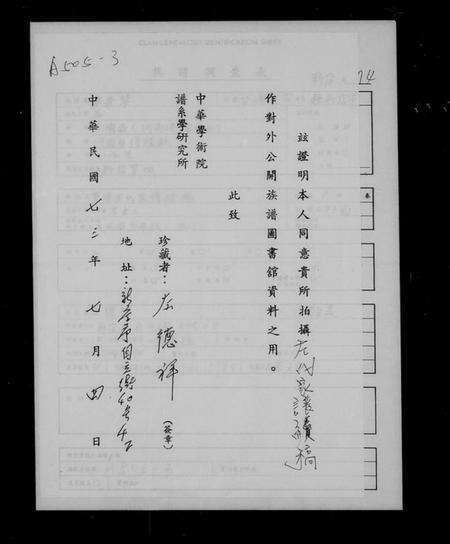 A505-3
24
茲證明本人同意貴所拍攝左氏家譜續稿
作對外公開族譜圖書館資料之用。
此致
中華學術院
譜系學研究所
珍藏者：左德祥（簽章）
地址：新莊市自立街40号4F
中華民國七三年七月四日